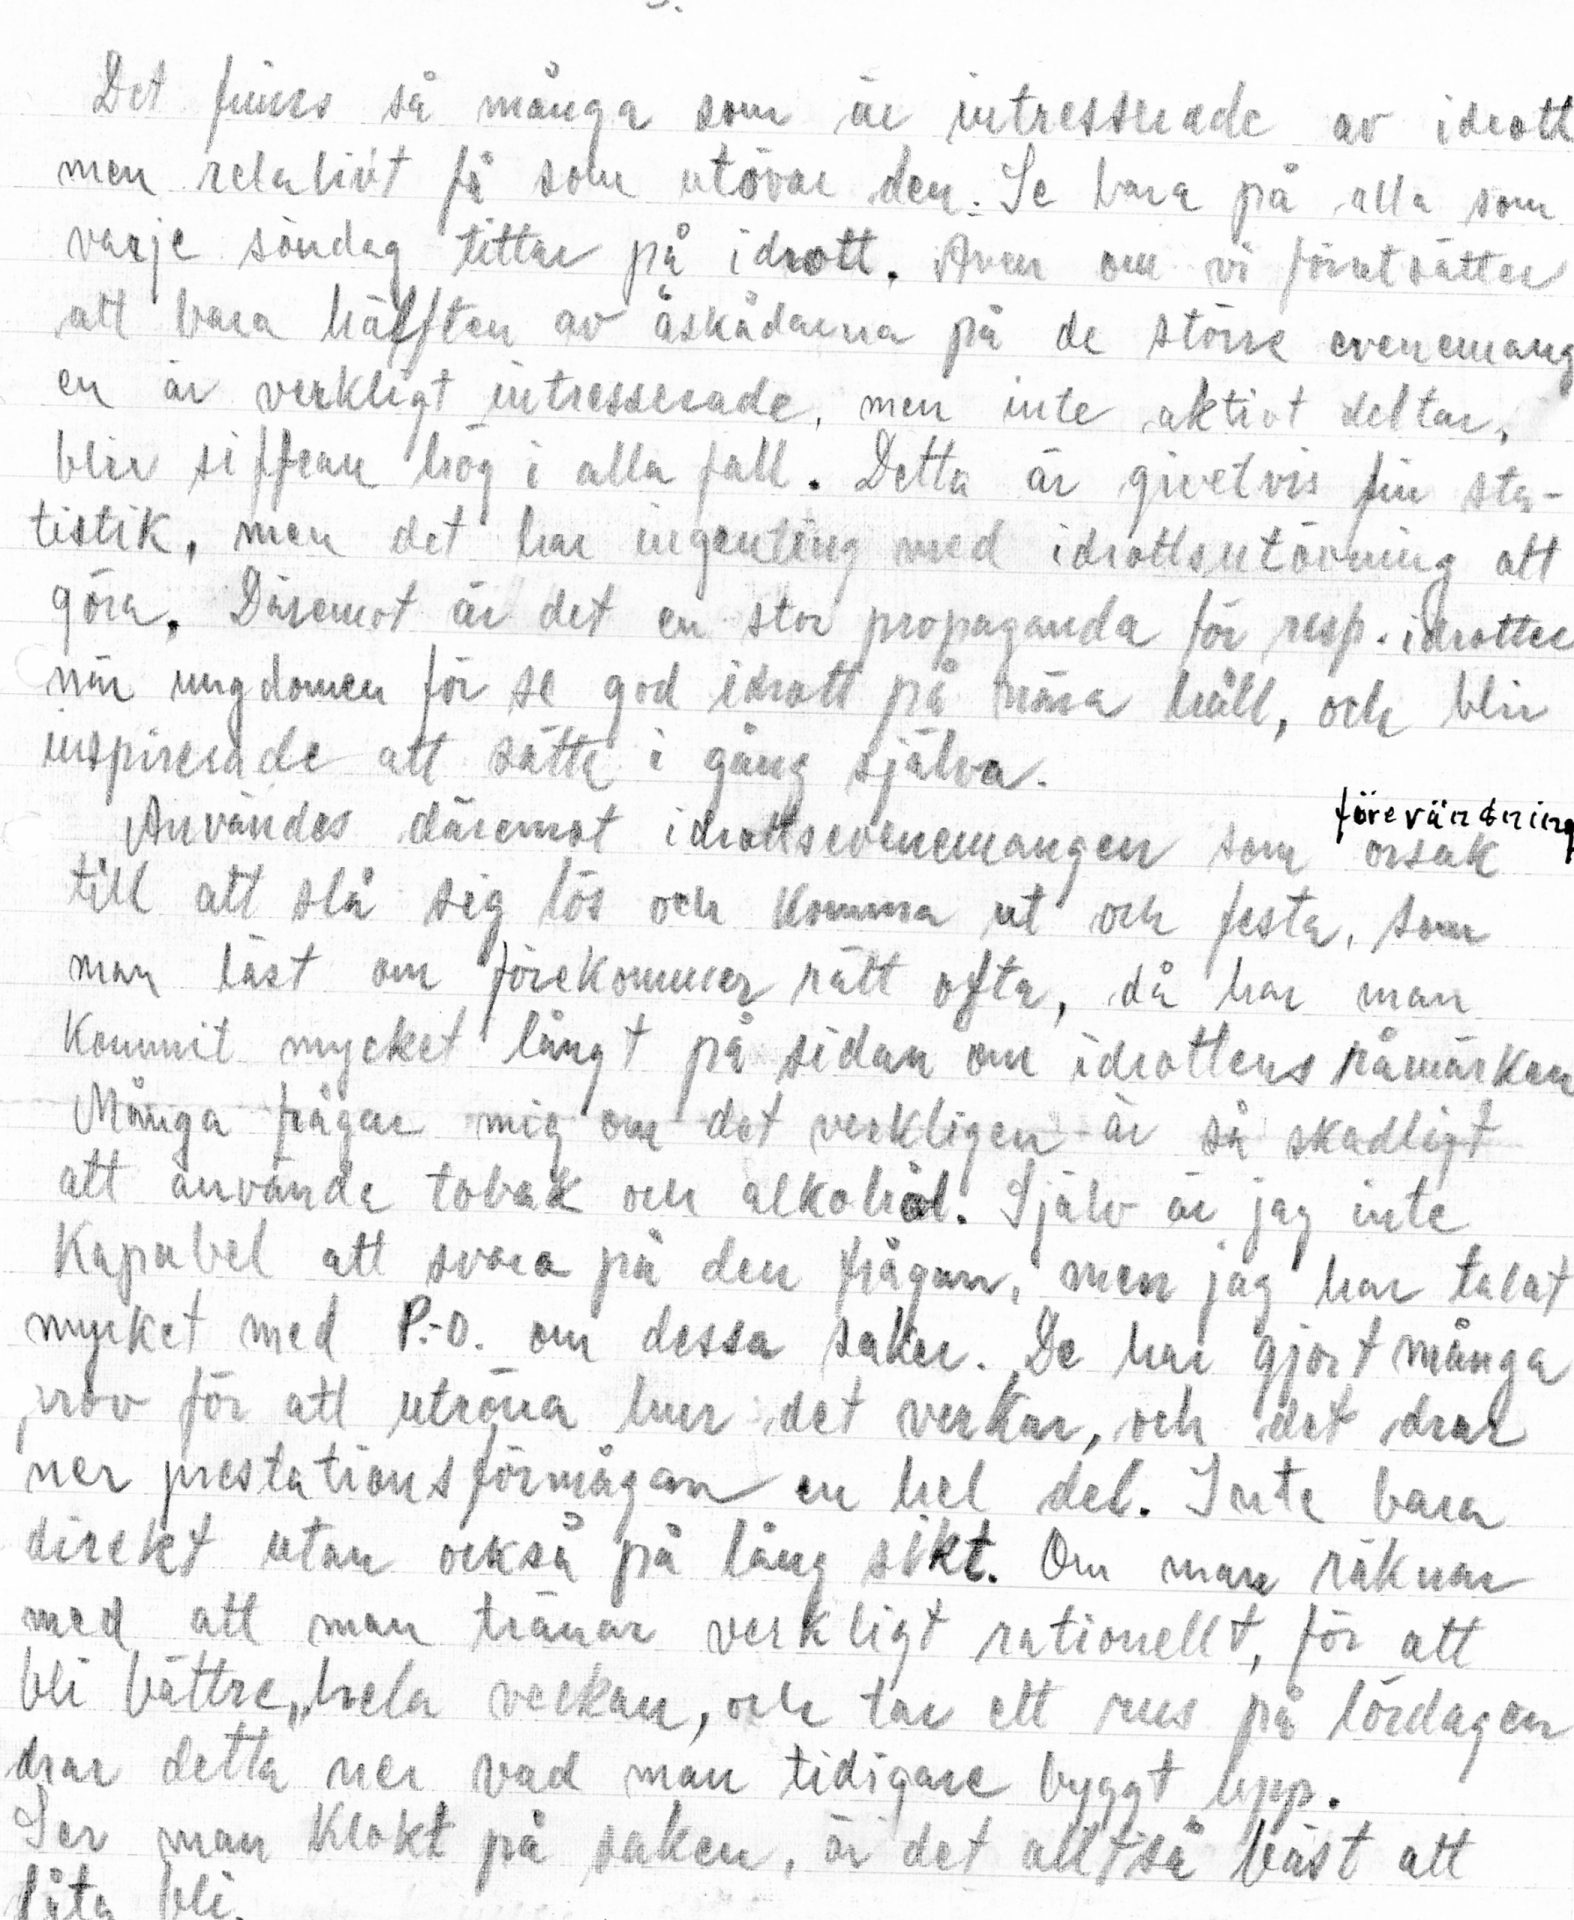 Det finns så många som är intresserade av idrott
men relativt få som utövar den. Se bara på alla som
varje söndag tittar på idrott. Även om vi förutsätter
att bara hälften av åskådarna på de större evenemang
en är verkligt intresserade, men inte aktivt deltar,
blir siffran hög i alla fall. Detta är givetvis fin sta-
tistik, men det har ingenting med idrottsutövning att
göra. Däremot är det en stor propaganda för resp. idrotter
när ungdomen får se god idrott på nära håll, och blir
inspirerade att sätta i gång själva.
förevändning
Användes däremot idrottsevenemangen som orsak
till att slå sig lös och komma ut och festa, som
man läst om förekommer rätt ofta, då har man
kommit mycket långt på sidan om idrottens råmärken
Många frågar mig om det verkligen är så skadligt
att använda tobak och alkohol. Själv är jag inte
kapabel att svara på den frågan, men jag har talat
mycket med P.-O. om dessa saker. De har gjort många
prov för att utröna hur det verkar, och det drar
ner prestationsförmågan en hel del. Inte bara
direkt utan också på lång sikt. Om man räknar
med att man tränar verkligt rationellt, för att
bli bättre, hela veckan, och tar ett rus på lördagen
drar detta ner vad man tidigare byggt upp.
Ser man klokt på saken, är det alltså bäst att
låta bli.